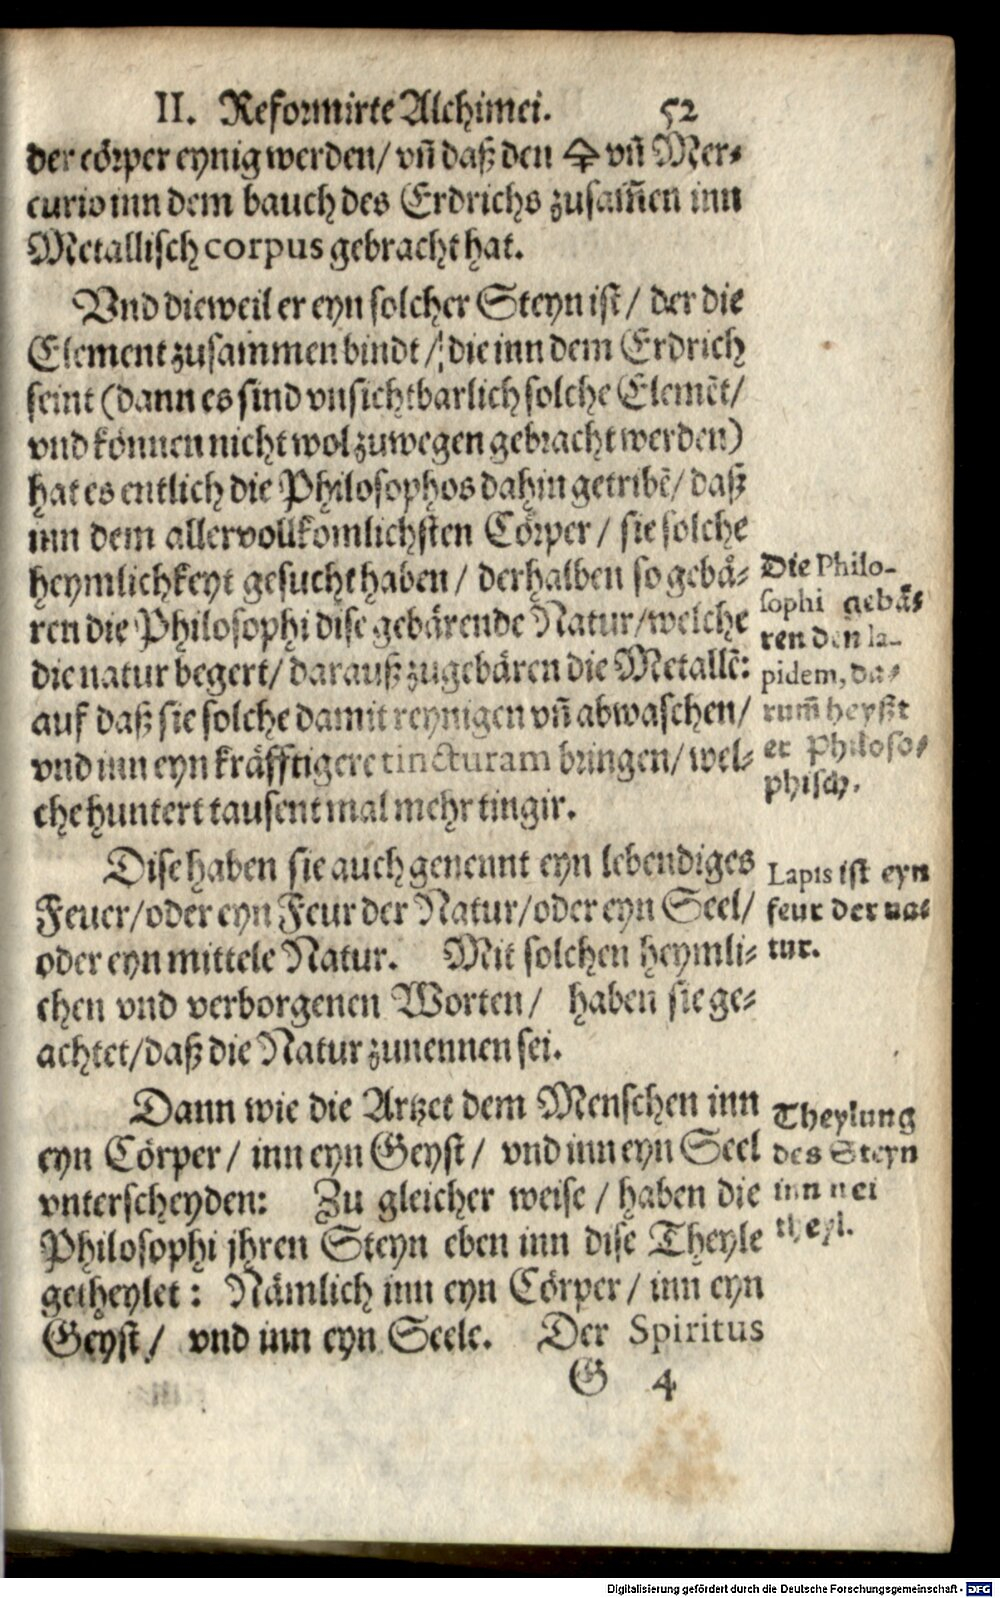 II. Reformirte Alchimei. 52
der cörper eynig werden/ vñ daß den 🜍 vñ Mer⸗
curio inn dem bauch des Erdrichs zusam̃en inn
Metallisch corpus gebracht hat.
Vnd dieweil er eyn solcher Steyn ist/ der die
Element zusammen bindt/ die inn dem Erdrich
seint (dann es sind vnsichtbarlich solche Elemẽt/
vnd können nicht wol zuwegen gebracht werden)
hat es entlich die Philosophos dahin getribẽ/ daß
inn dem allervollkomlichsten Cörper/ sie solche
heymlichkeyt gesucht haben/ derhalben so gebä⸗
ren die Philosophi dise gebärende Natur/welche
die natur begert/ darauß zugebären die Metallẽ:
auf daß sie solche damit reynigen vñ abwaschen/
vnd inn eyn kräfftigere tincturam bringen/ wel⸗
che huntert tausent mal mehr tingir.
Die Philo-
sophi gebä⸗
ren den la-
pidem, da⸗
rum̃ heyßt
er Philoso⸗
phisch.
Dise haben sie auch genennt eyn lebendiges
Feuer/oder eyn Feur der Natur/oder eyn Seel/
oder eyn mittele Natur. Mit solchen heymli⸗
chen vnd verborgenen Worten/ haben sie ge⸗
achtet/daß die Natur zunennen sei.
Lapis ist eyn
feur der na⸗
tur.
Dann wie die Artzet dem Menschen inn
eyn Cörper/ inn eyn Geyst/ vnd inn eyn Seel
vnterscheyden: Zu gleicher weise/ haben die
Philosophi jhren Steyn eben inn dise Theyle
getheylet: Nämlich inn eyn Cörper/ inn eyn
Geyst/ vnd inn eyn Seele. Der Spiritus
Theylung
des Steyn
inn
theyl.
G 4
Digitalisierung gefördert durch die Deutsche Forschungsgemeinschaft - DFG